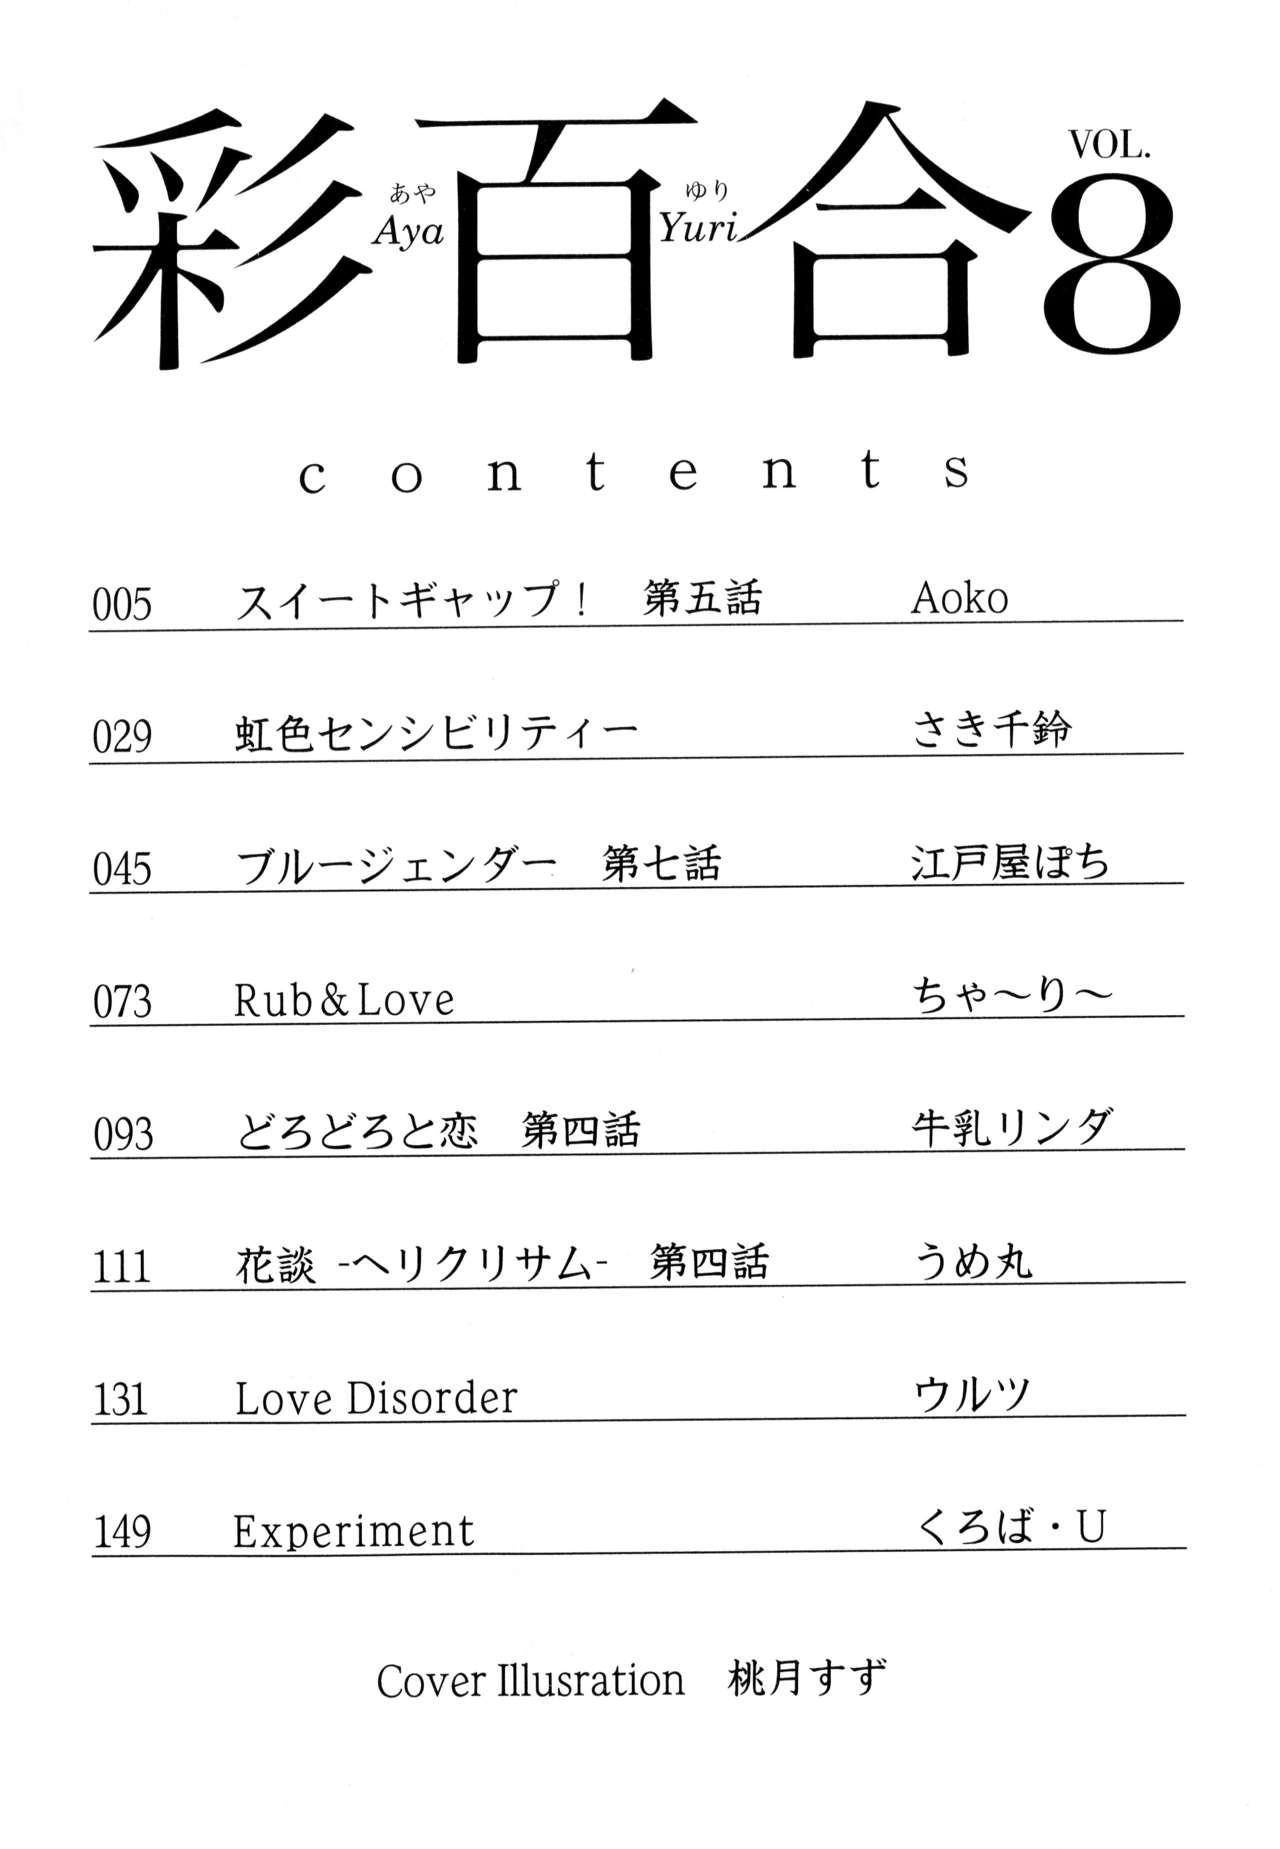 彩百合 VOL.8
あや ゆり
Aya Yuri
contents
005 スイートギャップ！ 第五話 Aoko
029 虹色センシビリティー さき千鈴
045 ブルージェンダー 第七話 江戸屋ぽち
073 Rub＆Love ちゃ〜り〜
093 どろどろと恋 第四話 牛乳リンダ
111 花談 -ヘリクリサム- 第四話 うめ丸
131 Love Disorder ウルツ
149 Experiment くろば・U
Cover Illusration 桃月すず